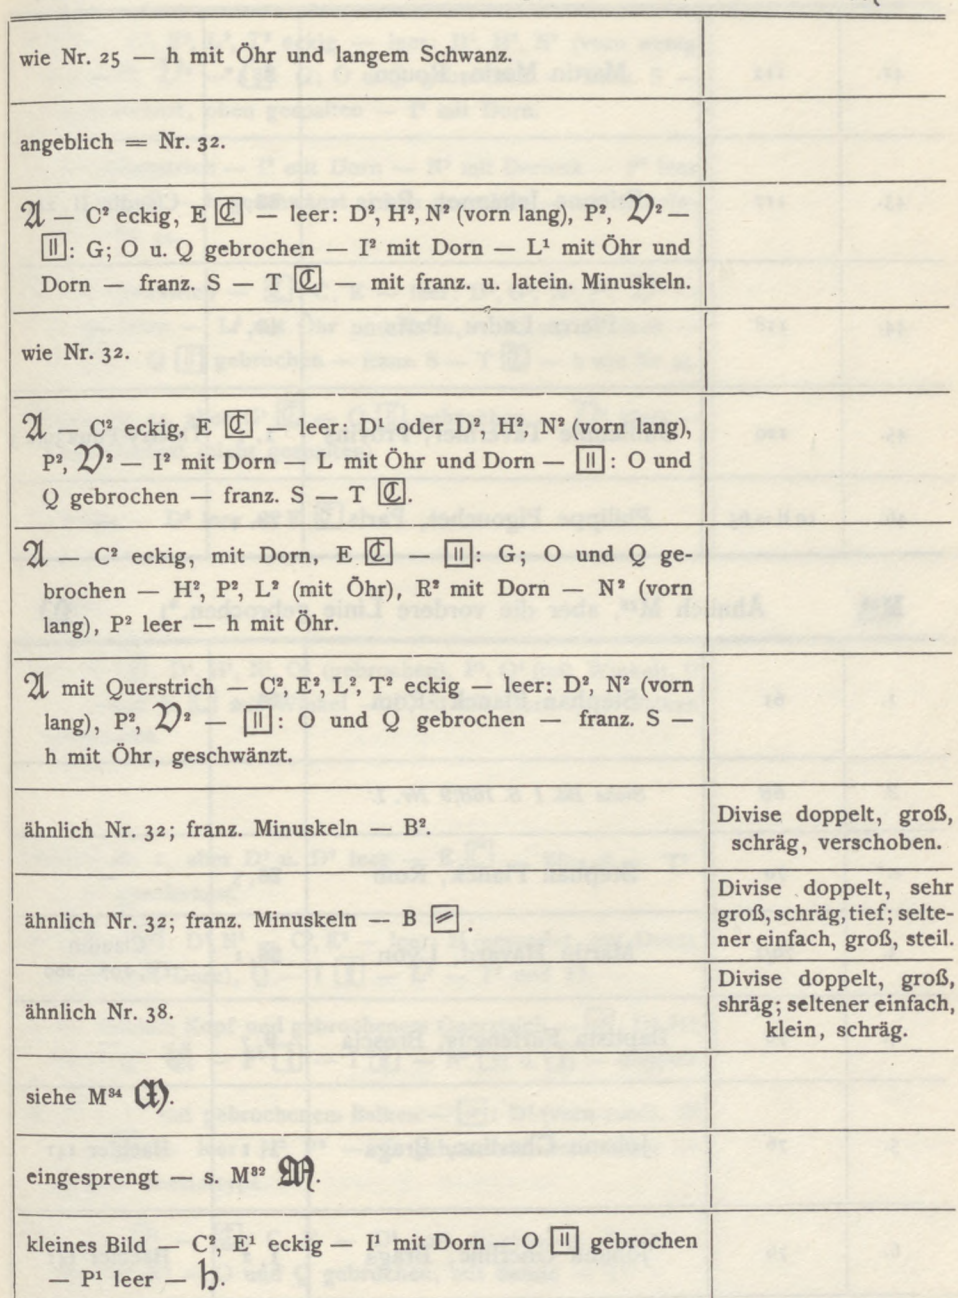 wie Nr. 25 — h mit Öhr und langem Schwanz.
angeblich = Nr. 32.
𝔄 — C² eckig, E ℭ — leer: D², H², N² (vorn lang), P², 𝔇² —
||: G; O u. Q gebrochen — I² mit Dorn — L¹ mit Öhr und
Dorn — franz. S — T ℭ — mit franz. u. latein. Minuskeln.
wie Nr. 32.
𝔄 — C² eckig, E ℭ — leer: D¹ oder D², H², N² (vorn lang),
P², 𝔇² — I² mit Dorn — L mit Öhr und Dorn — ||: O und
Q gebrochen — franz. S — T ℭ.
𝔄 C² eckig, mit Dorn, E ℭ — ||: G; O und Q ge-
brochen — H², P², L² (mit Öhr), R² mit Dorn — N² (vorn
lang), P² leer — h mit Öhr.
𝔄 mit Querstrich — C², E², L², T² eckig — leer: D², N² (vorn
lang), P², 𝔇² — ||: O und Q gebrochen — franz. S —
h mit Öhr, geschwänzt.
ähnlich Nr. 32; franz. Minuskeln — B².
Divise doppelt, groß,
schräg, verschoben.
ähnlich Nr. 32; franz. Minuskeln — B ⹀.
Divise doppelt, sehr
groß, schräg, tief; selte-
ner einfach, groß, steil.
ähnlich Nr. 38.
Divise doppelt, groß,
shräg; seltener einfach,
klein, schräg.
siehe M³⁴ 𝔐.
eingesprengt — s. M³² 𝔐.
kleines Bild — C², E¹ eckig — I¹ mit Dorn — O || gebrochen
— P¹ leer — 𝔥.